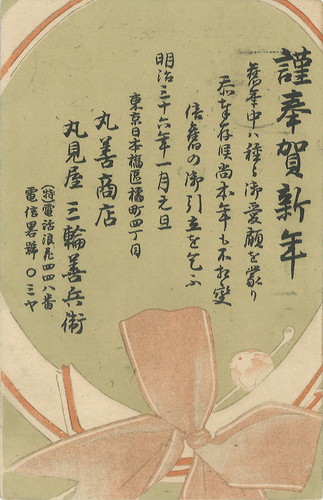 謹奉賀新年
舊年中ハ種々御愛顧を蒙り
忝奉存候尚本年も不相変
倍舊の御引立を乞ふ
明治三十六年一月元旦
東京日本橋區橘町四丁目
丸善商店
丸見屋 三輪善兵衛
(特電話浪花四四八番
電信畧號 〇ミヤ